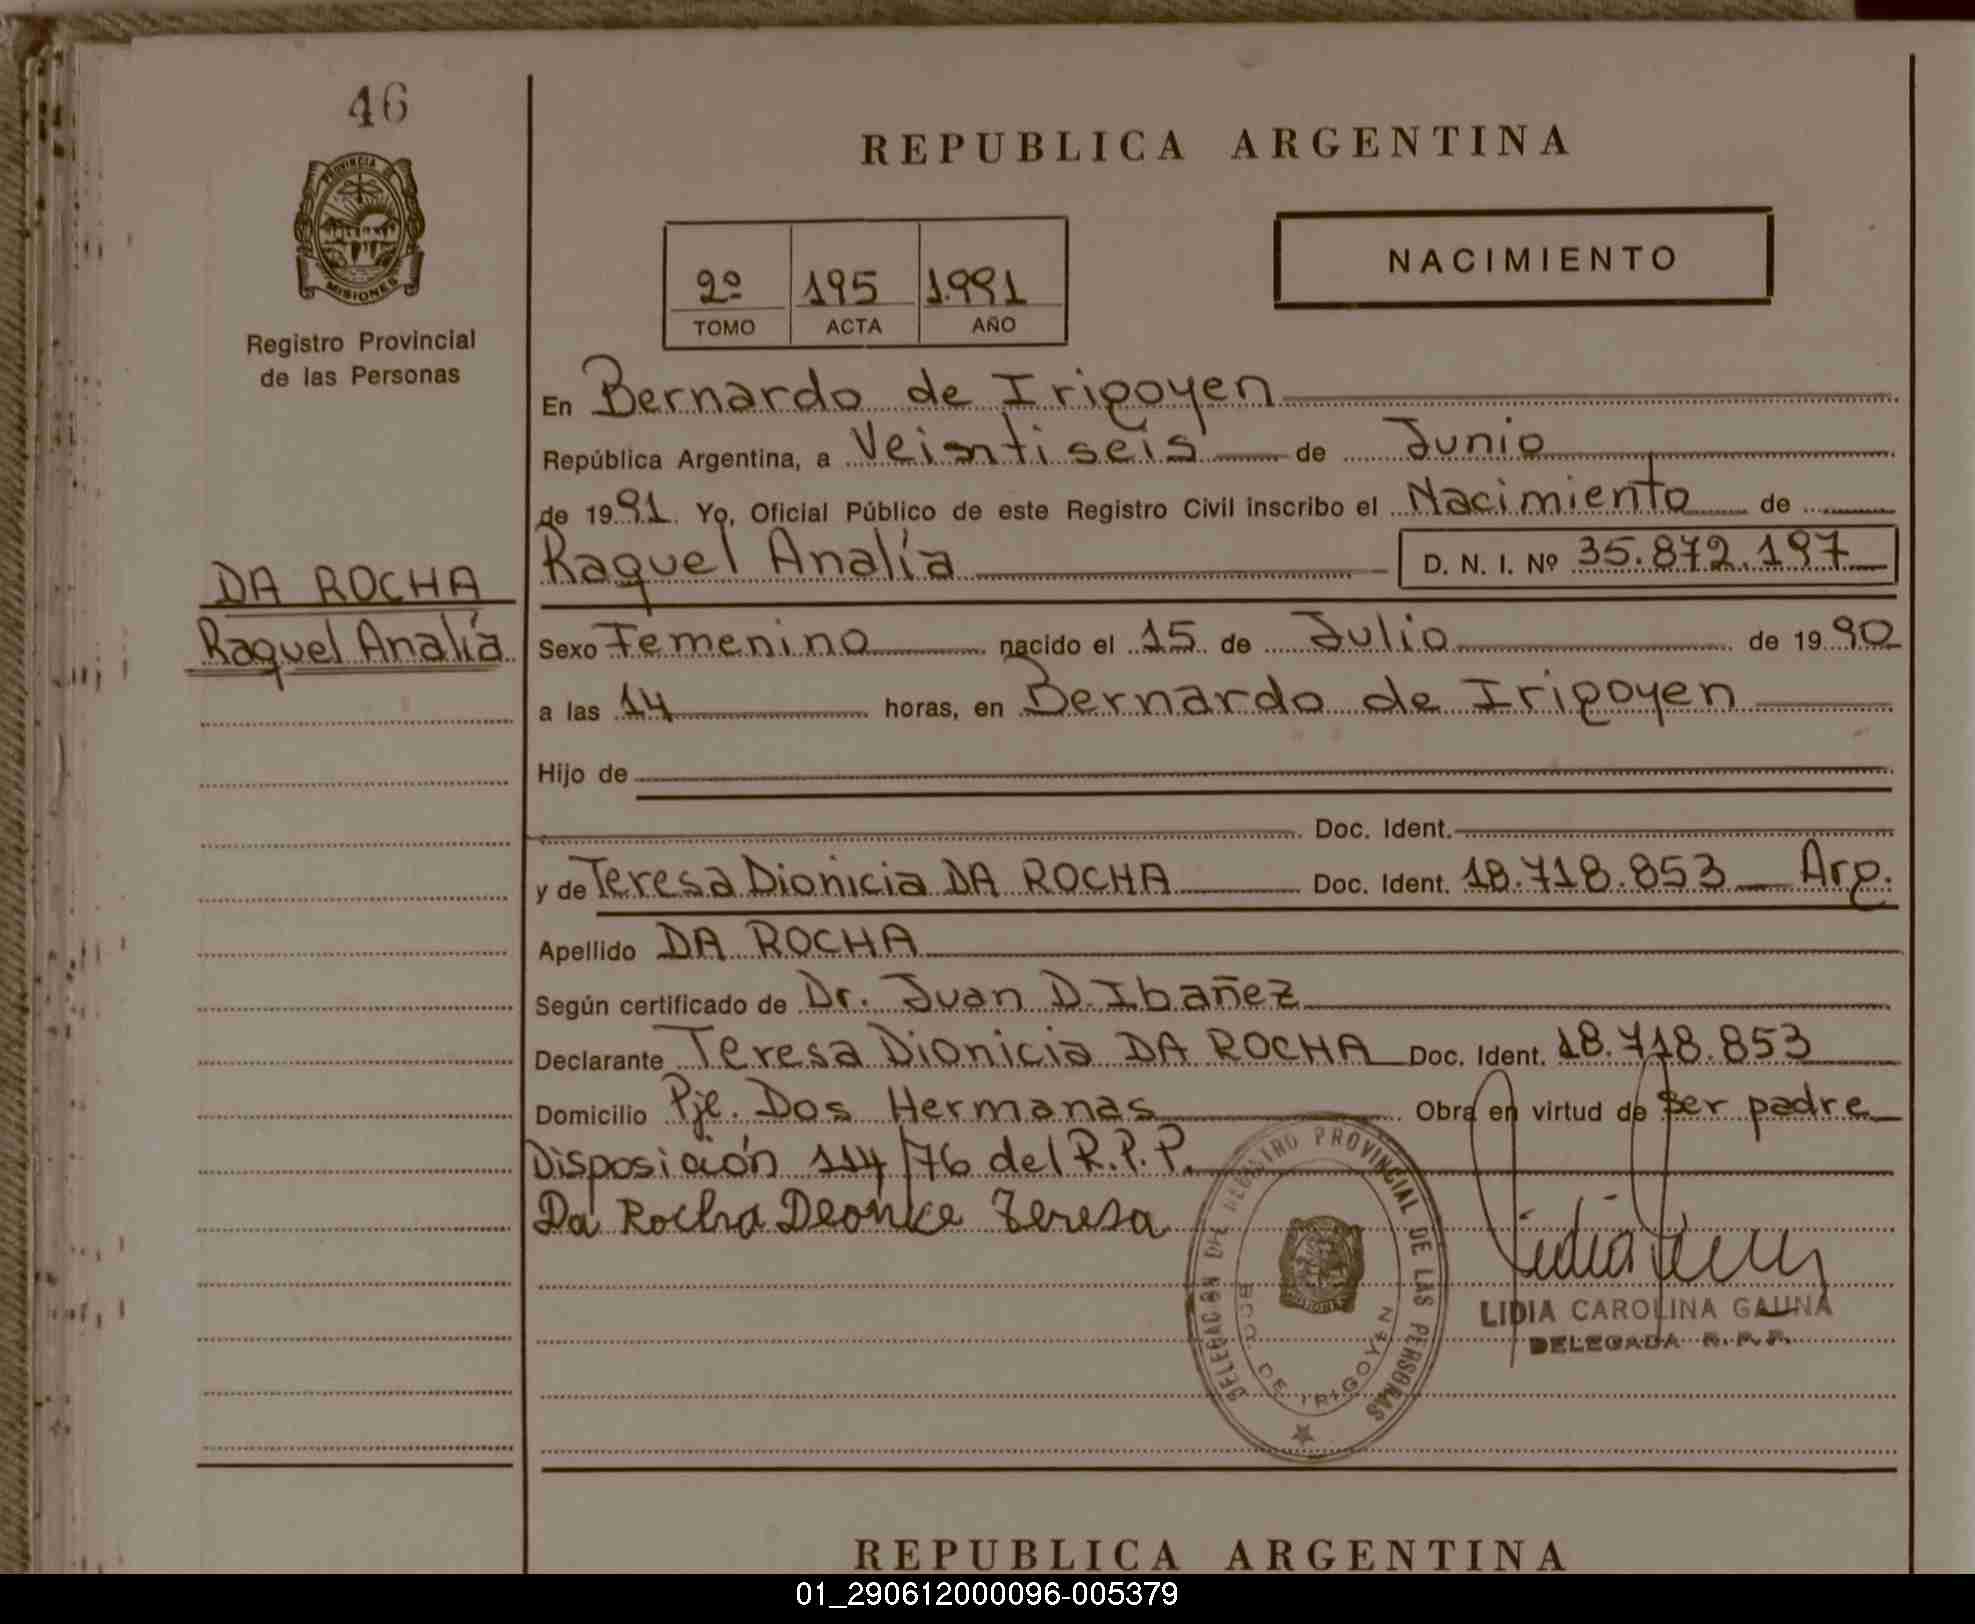 46
REPUBLICA ARGENTINA
PROVINCIA DE
MISIONES
Registro Provincial
de las Personas
2º 195 1.991
TOMO ACTA AÑO
NACIMIENTO
En Bernardo de Irigoyen
República Argentina, a Veintiseis de Junio
de 1991. Yo, Oficial Público de este Registro Civil inscribo el Nacimiento de
Raquel Analía D. N. I. Nº 35.872.197
DA ROCHA
Raquel Analía
Sexo Femenino nacido el 15 de Julio de 1990
a las 14 horas, en Bernardo de Irigoyen
Hijo de
Doc. Ident.
y de Teresa Dionicia DA ROCHA Doc. Ident. 18.718.853 Arg.
Apellido DA ROCHA
Según certificado de Dr. Juan D. Ibañez
Declarante Teresa Dionicia DA ROCHA Doc. Ident. 18.718.853
Domicilio Pje. Dos Hermanas Obra en virtud de ser padre
Disposición 114/76 del R.P.P.
Da Rocha Teresa
DELEGACION DEL REGISTRO PROVINCIAL DE LAS PERSONAS
BDO. DE IRIGOYEN
MISIONES
LIDIA CAROLINA GAUNA
DELEGADA R.P.P.
REPUBLICA ARGENTINA
01_290612000096-005379